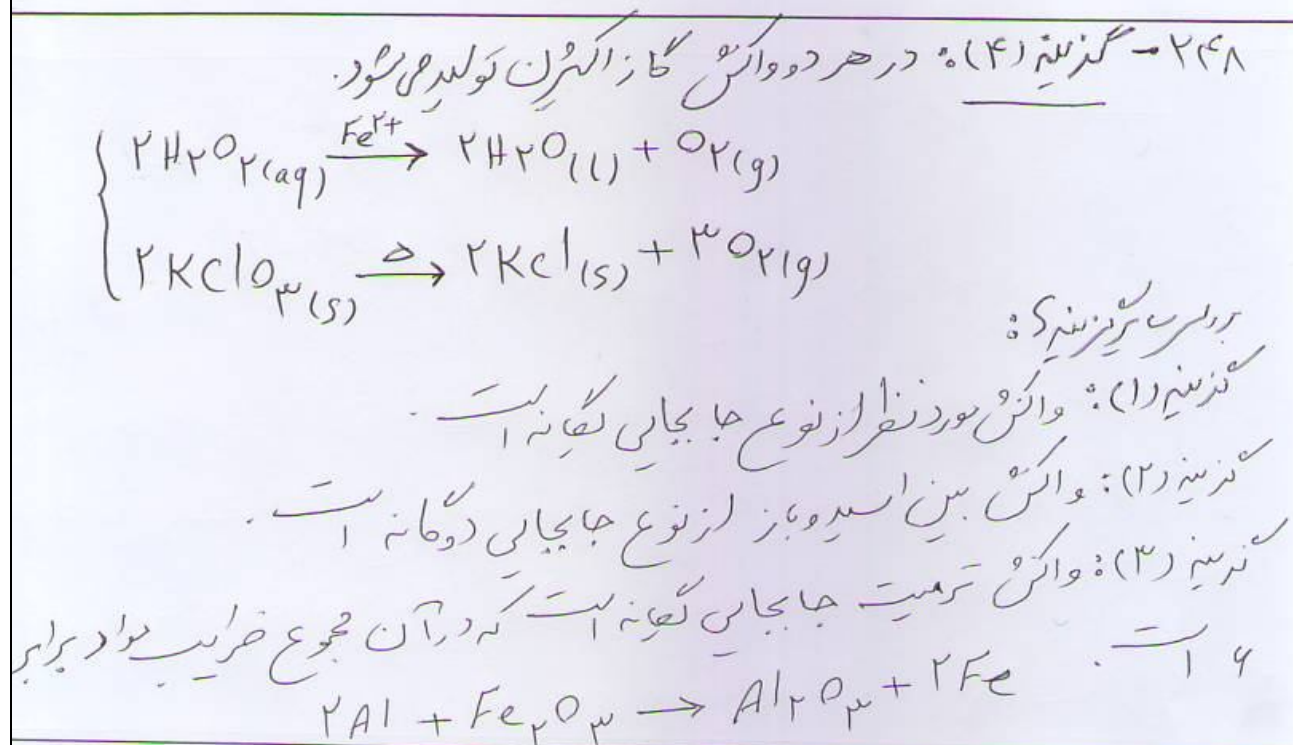 ۲۴۸ - گزینه (۴): در هر دو واکنش گاز اکسیژن تولید می‌شود.
۲H۲O۲(aq) →Fe۲+ ۲H۲O(l) + O۲(g)
۲KClO۳(s) →Δ ۲KCl(s) + ۳O۲(g)
بررسی سایر گزینه‌ها:
گزینه (۱): واکنش مورد نظر از نوع جا بجایی یگانه است.
گزینه (۲): واکنش بین اسید و باز از نوع جابجایی دوگانه است.
گزینه (۳): واکنش ترمیت جابجایی یگانه است که در آن مجموع ضرایب مواد برابر
۶ است. ۲Al + Fe۲O۳ → Al۲O۳ + ۲Fe